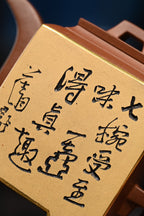 七椀受至
味一壺
得真趣